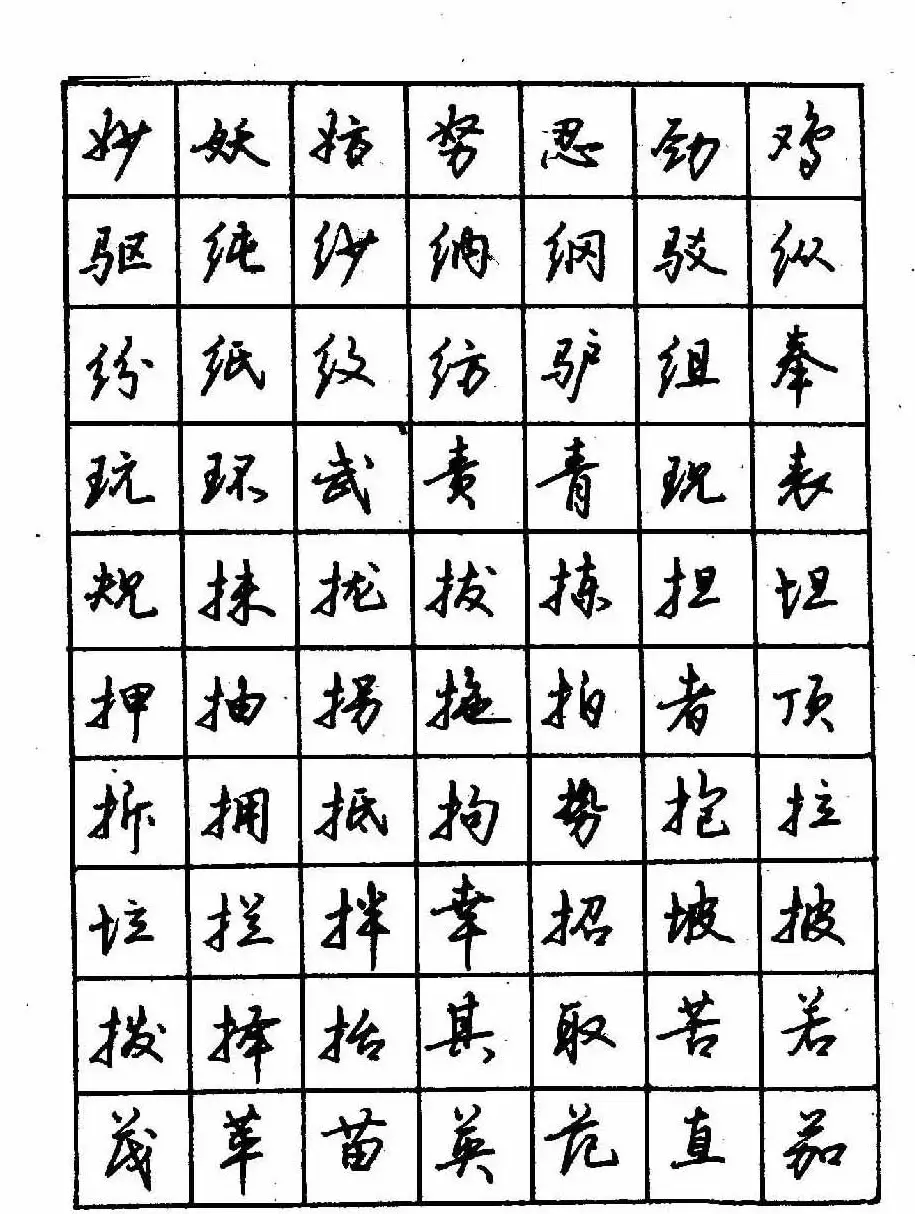 妙妖努忍劲鸡
驱纯纱纳纲驳纵
纷纸纹纺驴组奉
玩环武责青现表
规抹拢拔拣担坦
押抽拐拖拍者顶
拆拥抵拘势抱拉
垃拦拌幸招坡披
拨择抬其取苦若
茂苹苗英范直茄